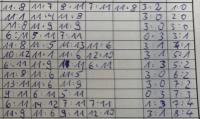 11:8 11:7 8:11 7:11 11:8 3:2 1:0
11:1 11:4 11:8 3:0 2:0
11:8 11:9 11:8 3:0 3:0
6:11 5:11 7:11 0:3 3:1
11:8 11:5 11:13 11:6 3:1 4:1
10:12 11:1 11:6 12:10 3:1 5:1
6:11 11:9 11:6 11:6 1:3 5:2
11:8 11:6 11:5 3:0 6:2
11:8 11:6 11:3 3:0 7:2
9:11 6:11 5:11 0:3 7:3
6:11 14:12 7:11 7:11 1:3 7:4
11:9 11:6 9:11 12:10 3:1 8:4